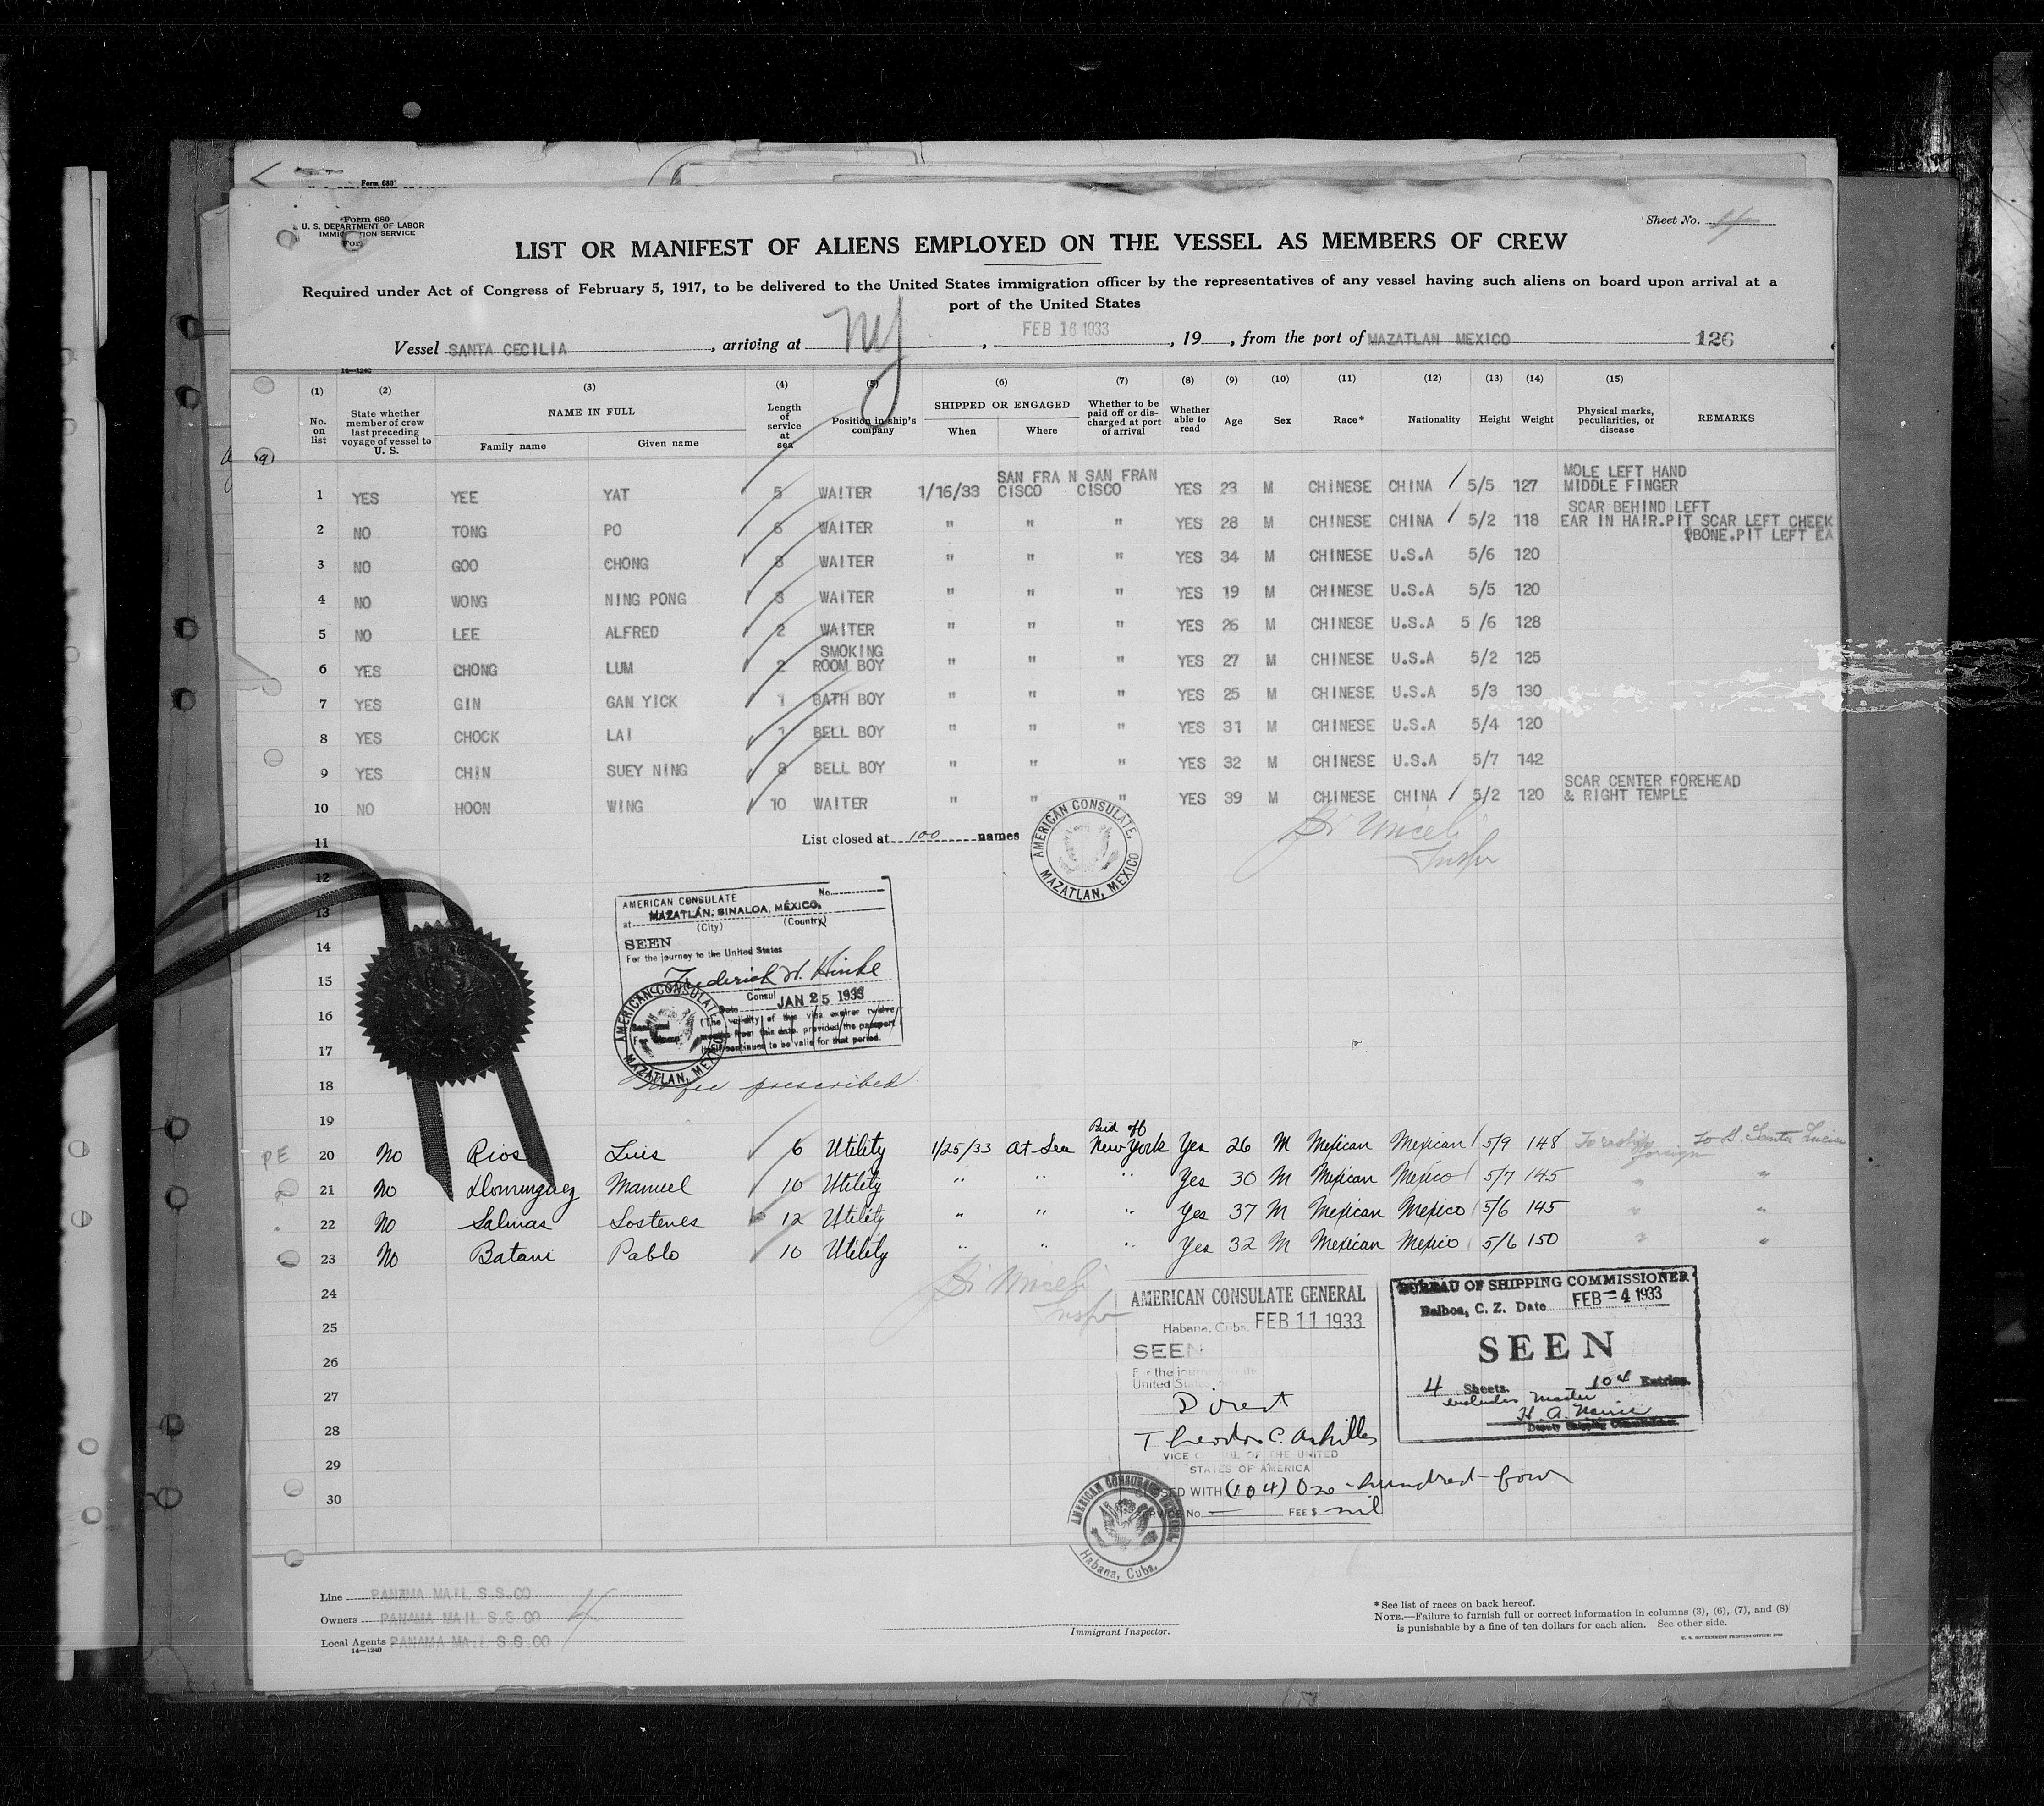 Form 680
Form 680
U. S. DEPARTMENT OF LABOR
IMMIGRATION SERVICE
Sheet No. 4
LIST OR MANIFEST OF ALIENS EMPLOYED ON THE VESSEL AS MEMBERS OF CREW
Required under Act of Congress of February 5, 1917, to be delivered to the United States immigration officer by the representatives of any vessel having such aliens on board upon arrival at a
port of the United States
Vessel SANTA CECILIA, arriving at NY, FEB 16 1933, 19, from the port of MAZATLAN MEXICO 126
14—1240
(1) (2) (3) (4) (5) (6) (7) (8) (9) (10) (11) (12) (13) (14) (15)
No. on list State whether member of crew last preceding voyage of vessel to U. S. NAME IN FULL Family name Given name Length of service at sea Position in ship's company SHIPPED OR ENGAGED When Where Whether to be paid off or discharged at port of arrival Whether able to read Age Sex Race* Nationality Height Weight Physical marks, peculiarities, or disease REMARKS
1 YES YEE YAT 5 WAITER 1/16/33 SAN FRA N CISCO SAN FRAN CISCO YES 23 M CHINESE CHINA 5/5 127 MOLE LEFT HAND MIDDLE FINGER
2 NO TONG PO 6 WAITER " " " YES 28 M CHINESE CHINA 5/2 118 SCAR BEHIND LEFT EAR IN HAIR.PIT SCAR LEFT CHEEK BONE.PIT LEFT EA
3 NO GOO CHONG 8 WAITER " " " YES 34 M CHINESE U.S.A 5/6 120
4 NO WONG NING PONG 3 WAITER " " " YES 19 M CHINESE U.S.A 5/5 120
5 NO LEE ALFRED 2 WAITER " " " YES 26 M CHINESE U.S.A 5 /6 128
6 YES CHONG LUM 2 SMOKING ROOM BOY " " " YES 27 M CHINESE U.S.A 5/2 125
7 YES GIN GAN YICK 1 BATH BOY " " " YES 25 M CHINESE U.S.A 5/3 130
8 YES CHOCK LAI 1 BELL BOY " " " YES 31 M CHINESE U.S.A 5/4 120
9 YES CHIN SUEY NING 8 BELL BOY " " " YES 32 M CHINESE U.S.A 5/7 142
10 NO HOON WING 10 WAITER " " " YES 39 M CHINESE CHINA 5/2 120 SCAR CENTER FOREHEAD & RIGHT TEMPLE
List closed at 100 names
11
AMERICAN CONSULATE, MAZATLAN, MEXICO
Insp
12
13
14
15
16
17
18
19
AMERICAN CONSULATE No.
at MAZATLÁN, SINALOA, MÉXICO.
(City) (Country)
SEEN
For the journey to the United States
Frederick W. Hinke
Consul
Date JAN 25 1933
(The validity of this visa expires twelve
months from this date, provided the passport
itself continues to be valid for that period.
AMERICAN CONSULATE MAZATLAN, MEXICO
No fee prescribed
PE 20 No Rios Luis 6 Utility 1/25/33 at Sea Paid off New York Yes 26 M Mexican Mexican 5/9 148 To reship foreign to S. Santa Lucia
21 No Dominguez Manuel 10 Utility " " " Yes 30 M Mexican Mexico 5/7 145 " "
22 No Salinas Sostenes 12 Utility " " " Yes 37 M Mexican Mexico 5/6 145 " "
23 No Batani Pablo 10 Utility " " " Yes 32 M Mexican Mexico 5/6 150 " "
24
25
26
27
28
29
30
Insp
AMERICAN CONSULATE GENERAL
Habana, Cuba, FEB 11 1933
SEEN
For the journey to the
United States
Direct
Theodore C. Achilles
VICE CONSUL OF THE UNITED
STATES OF AMERICA
CLOSED WITH (104) One-hundred-four
SERVICE No. — FEE $ nil
AMERICAN CONSULATE GENERAL Habana, Cuba.
BUREAU OF SHIPPING COMMISSIONER
Balboa, C. Z. Date FEB -4 1933
SEEN
4 Sheets. 104 Entries.
includes Master
Deputy Shipping Commissioner
Line PANAMA MAIL S.S.CO
Owners PANAMA MAIL S.S CO 4
Local Agents PANAMA MAIL S.S.CO
14—1240
Immigrant Inspector.
*See list of races on back hereof.
NOTE.—Failure to furnish full or correct information in columns (3), (6), (7), and (8)
is punishable by a fine of ten dollars for each alien. See other side.
U. S. GOVERNMENT PRINTING OFFICE: 1929